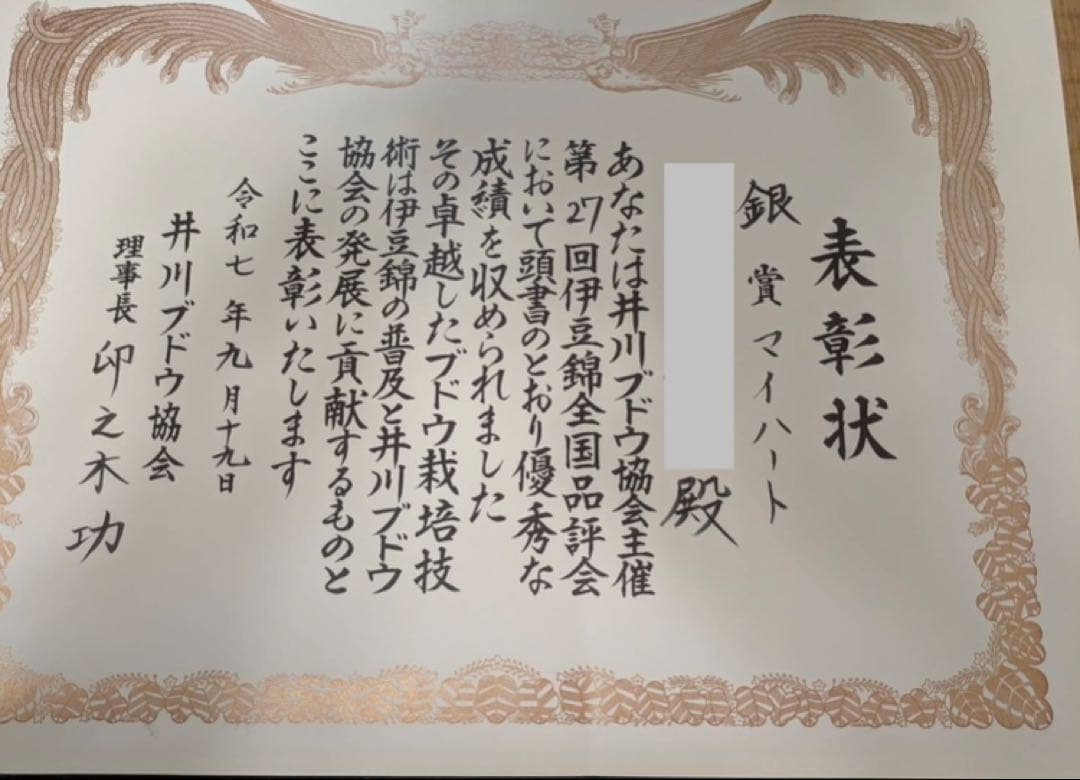 表彰状
銀賞 マイハート
殿
あなたは井川ブドウ協会主催
第27回伊豆錦全国品評会
において頭書のとおり優秀な
成績を収められました
その卓越したブドウ栽培技
術は伊豆錦の普及と井川ブドウ
協会の発展に貢献するものと
ここに表彰いたします
令和七年九月十九日
井川ブドウ協会
理事長 卯之木功